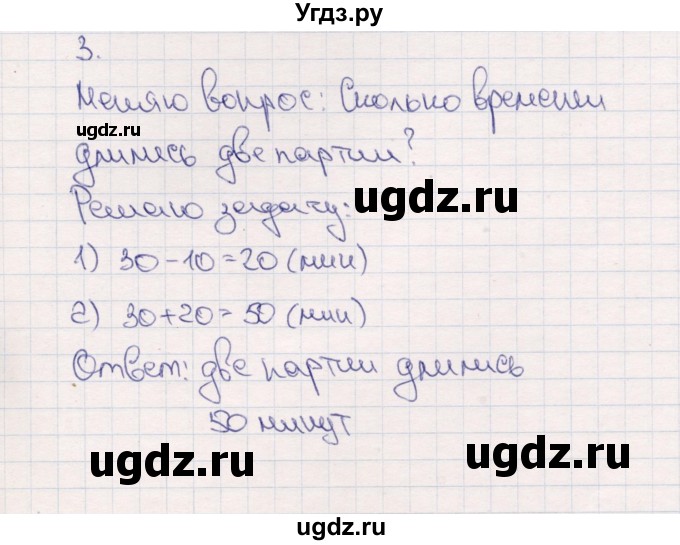 Угдз.ру
3.
Меняю вопрос: Сколько времени
ugdz.ru
длились две партии?
ugdz.ru
Решаю задачу:
1) 30-10=20 (мин)
2) 30+20=50 (мин)
Ответ: две партии длились
50 минут
ugdz.ru ugdz.ru
ugdz.ru